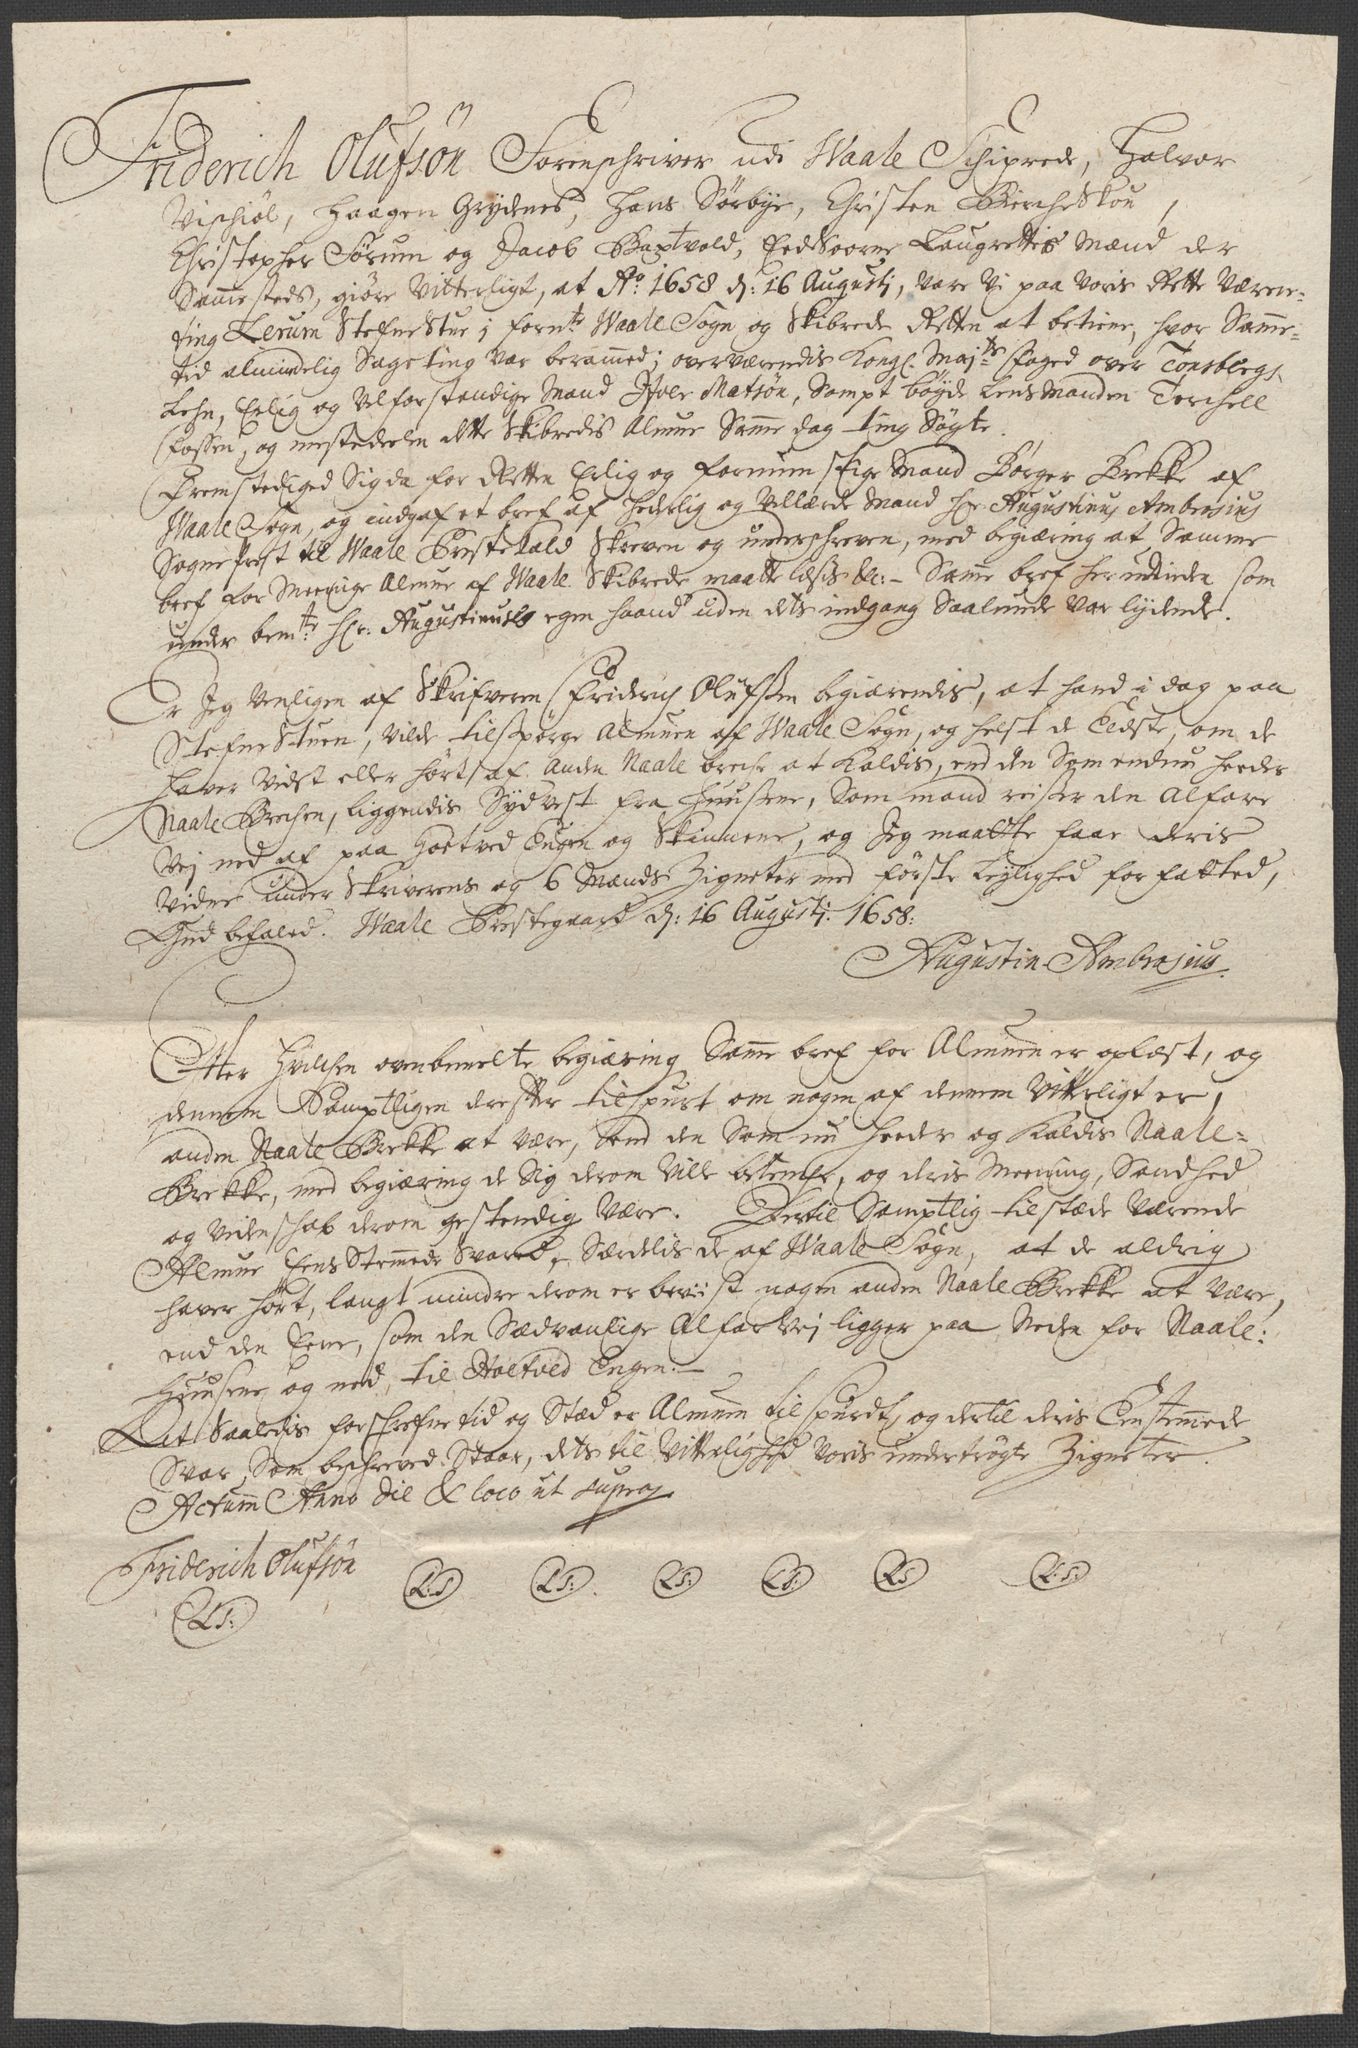 Friderich Olufsön Sorenschriver udi Waale Schiprede, Halvor
Vischiöl, Haagen Grydenes, Hans Sörbÿe, Christen Bircheskou,
Christopher Sörum og Jacob Baxtvold, Eedsoorne Laugrettis Mænd der
Sammesteds, giöre Vitterligt, at Aº 1658 d: 16 Augustj, Vare Vi paa Voris Rette Værne-
ting Lerum Stefne Stue j fornte Waale Sogn og Skibrede Retten at betiene, hvor Samme-
tid almindelig Sageting var berammed; overværendis Kongl. Majts Foged over Tonsbergs
Lehn, Erlig og Velforstandige Mand Ifver Matsön, Sampt böyde Lensmanden Torchell
Fossen, og mestedeelen dette Skibredis Almue Samme dag ting Sögte.
Fremstediged Sig da for Retten Erlig og fornumstige Mand Börger Brekke af
Waale Sogn, og indgaf et bref af Hederlig og Vellærde Mand Hr Augustinus Ambrosius
Sogne Prest til Waale Prestekald Skreven og underschreven, med begiæring at Samme
bref for Meenige Almue af Waale Skibrede maatte læsis &c:- Samme bref her indførte som
under bemte Hr. Augustinuses egen haand uden dets indgang Saalunde var lÿdende.
Er Jeg Venligen af Skrifveren Friderich Olufsen begiærendis, at hand i dag paa
StefneStuen, vilde tilspörge Almuen af Waale Sogn, og helst de Eldste, om de
haver vidst eller hört af anden Naale breche at Kaldis, end den Som endnu heeder
Naale Brechen, liggendis Sÿdvest fra Huusene, Som mand reiser den Alfare
Vej ned af paa Hoetved Engen og Skinnene, og Jeg maatte faae deris
Vidne under Skriverens og 6 Mænds Zigneter med förste Leylighed forfatted,
Gud befaled. Waale Prestegaard d: 16 Augustj. 1658:
Augustin Ambrosius
Efter Hvilchen ovenbemelte begiæring Samme bref for Almuen er oplæst, og
dennem Samptligen derefter tilspurt om nogen af dennem Vitterligt er,
anden Naale Brekke at være, end den Som nu heeder og Kaldis Naale-
Brekke, med begiæring de Sig derom ville betencke, og deris Meening, Sandhed
og Videnschab derom gestendig være. Dertil Samptlig tilstæde Værende
Almue Eens Stemmede Svared, Særdelis de af Waale Sogn, at de aldrig
haver hört, langt mindre derom er beviist nogen anden Naale Brekke at være,
end den Eene, som den Sædvanlige Alfarvej ligger paa Neden for Naale:
Huusene og ned til Hoetved Engen.-
At Saaledis forschrefne tid og Stæd er Almuen tilspurdt, og dertil deris Eenstemmede
Svar, Som beschreved Staar, dets til Vitterlighed Voris undertrögte Zigneter.
Actum Anno die & loco ut supra
Friderich Olufsön
L:S L.S: L.S: L.S: L.S L:S:
L.S: